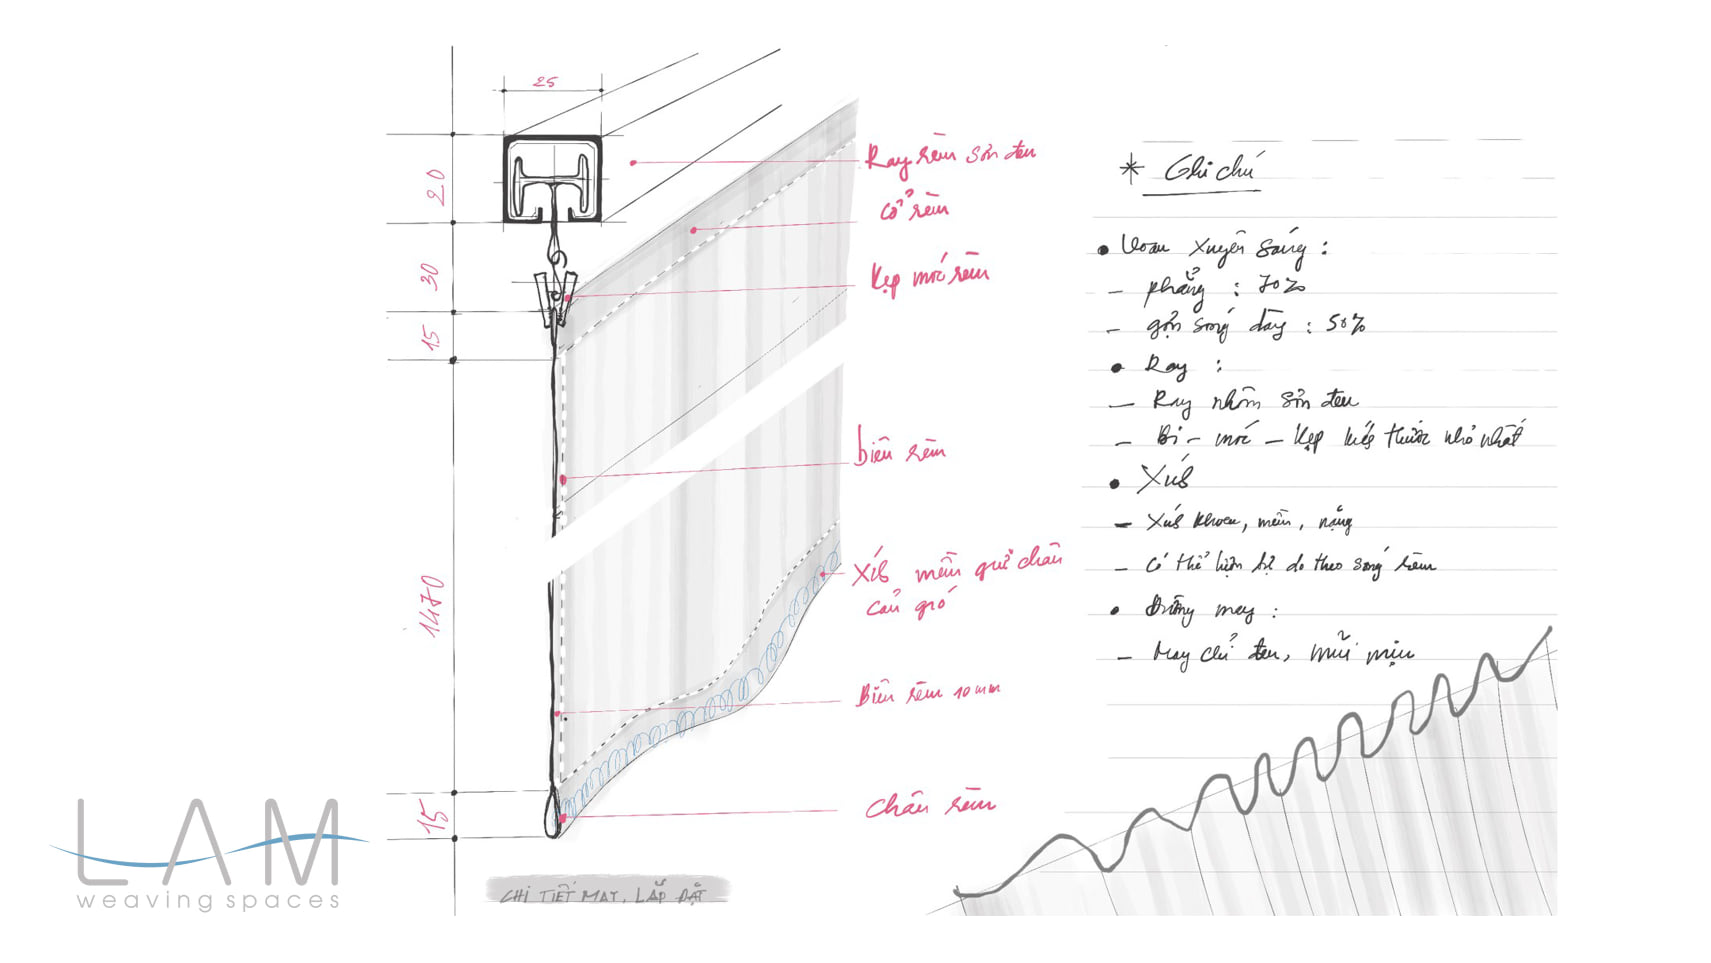 25
20
30
15
1470
15
Ray rèm sơn đen
cổ rèm
kẹp móc rèm
biên rèm
mềm quí chân
cản gió
Biên rèm 10mm
chân rèm
CHI TIẾT MAY, LẮP ĐẶT
LAM
weaving spaces
* Ghi chú
• Voan xuyên sáng :
- phẳng : 70%
- gợn sóng dày : 50%
• Ray :
- Ray nhôm sơn đen
- Bi - móc - kẹp kích thước nhỏ nhất
•
- khoen, mềm, nặng
- có thể hiện do theo sóng rèm
• Đường may :
- May chỉ đen, mũi mịn